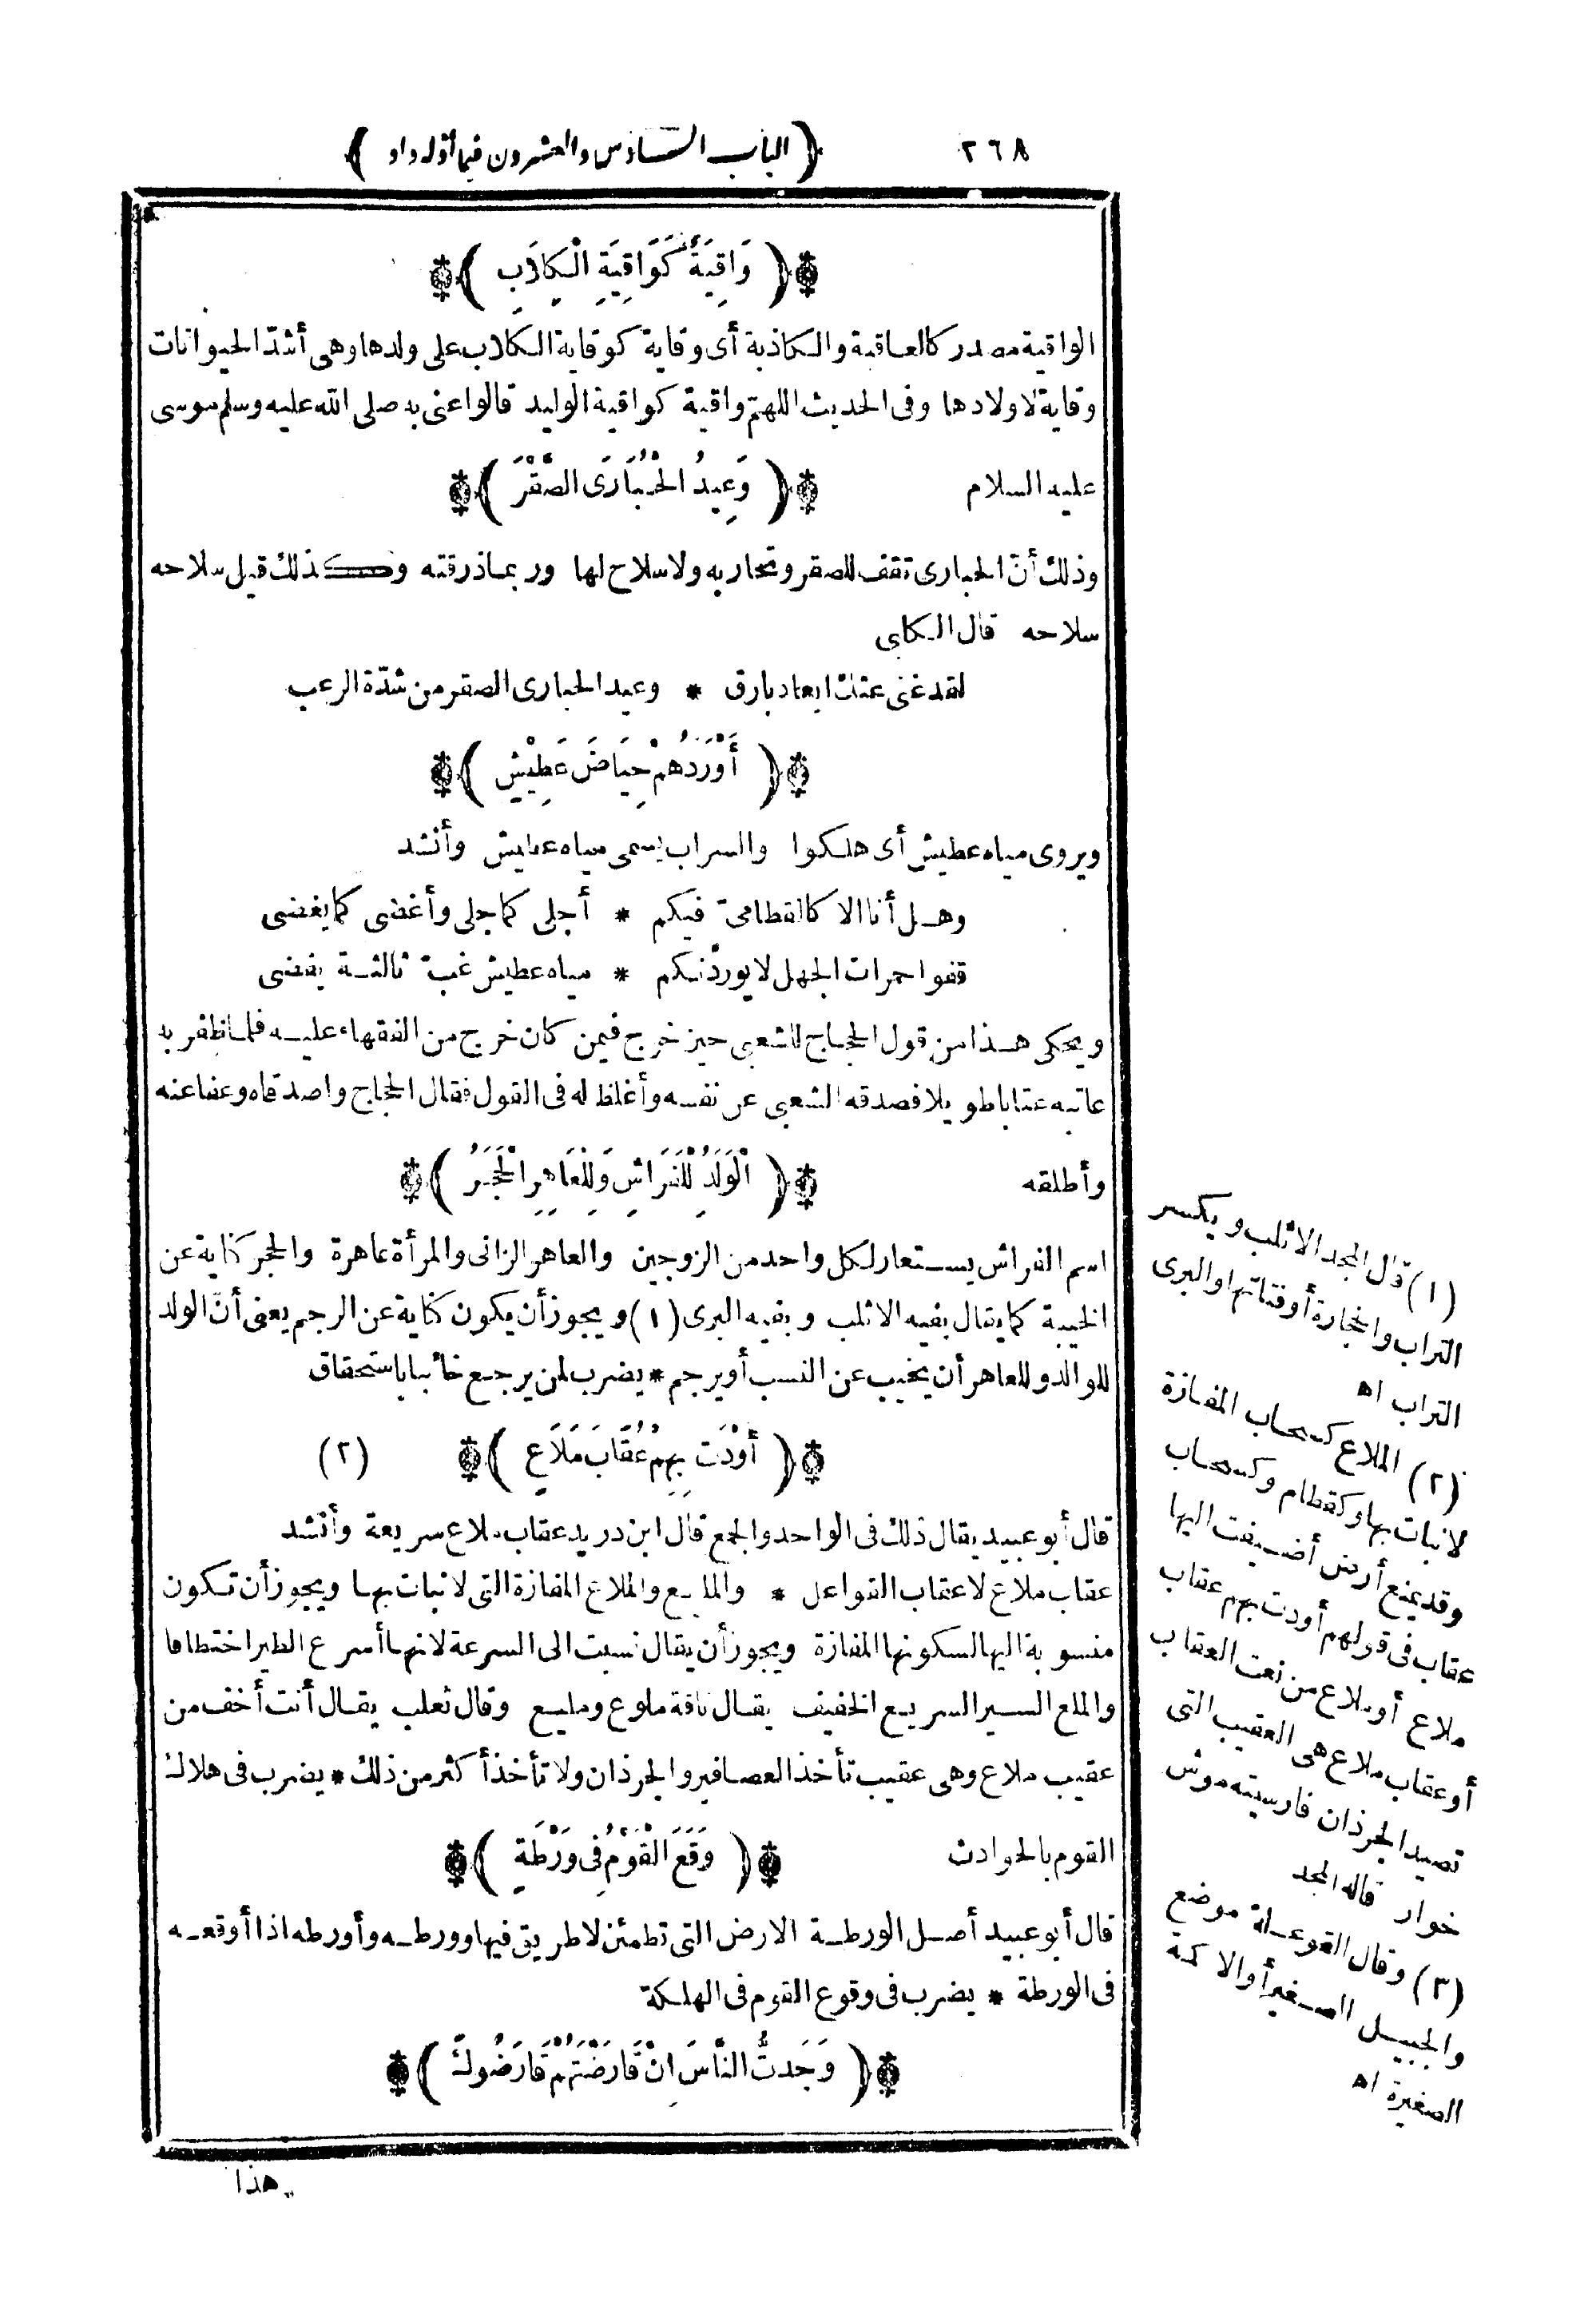 ٢٦٨
﴿ الباب السادس والعشرون فيما أوّله واو ﴾
﴿ وَاقِيَةٌ كَوَاقِيَةِ الْكِلَابِ ﴾
الواقية مصدر كالعاقبة والكاذبة أى وقاية كوقاية الكلاب على ولدها وهى أشدّ الحيوانات
وقاية لاولادها وفى الحديث اللهمّ واقية كواقية الوليد قالوا عنى به صلى الله عليه وسلم موسى
عليه السلام ﴿ وَعِيدُ الْحُبَارَى الصَّقْرَ ﴾
وذلك أنّ الحبارى تقف للصقر وتحاربه ولا سلاح لها وربما ذرقته وكذلك قيل سلاحه
سلاحه قال الكلبى
لقد غنى عنك ابعاد بارق * وعيد الحبارى الصقر من شدّة الرعب
﴿ أَوْرَدَهُمْ حِيَاضَ عَطِيْشٍ ﴾
ويروى مياه عطيش أى هلكوا والسراب يسمى مياه عطيش وأنشد
وهل أنا الا كالقطامىّ فيكم * أجلى كما جلى وأغضى كما يغضى
قفوا حمرات الجهل لا يوردّنكم * مياه عطيش غبّ ثالثة يفضى
ويحكى هذا من قول الحجاج للشعبى حين خرج فيمن كان خرج من الفقهاء عليه فلما ظفر به
عاتبه عتابا طويلا فصدقه الشعبى عن نفسه وأغلظ له فى القول فقال الحجاج واصدقاه وعفا عنه
وأطلقه ﴿ الْوَلَدُ لِلْفَرَاشِ وَلِلْعَاهِرِ الْحَجَرُ ﴾
اسم الفراش يستعار لكل واحد من الزوجين والعاهر الزانى والمرأة عاهرة والحجر كناية عن
الخيبة كما يقال بفيه الاثلب وبفيه البرى (١) ويجوز أن يكون كناية عن الرجم يعنى أنّ الولد
للوالد وللعاهر أن يخيب عن النسب أو يرجم * يضرب لمن يرجع خائبا باستحقاق
﴿ أَوْدَتْ بِهِمْ عُقَابَ مَلَاعِ ﴾ (٢)
قال أبو عبيد يقال ذلك فى الواحد والجمع قال ابن دريد عقاب ملاع سريعة وأنشد
عقاب ملاع لا عقاب القواعل * والمليع والملاع المفازة التى لا نبات بها ويجوز أن تكون
منسوبة اليها لسكونها المفازة ويجوز أن يقال نسبت الى السرعة لانها أسرع الطير اختطافا
والملع السير السريع الخفيف يقال ناقة ملوع ومليع وقال ثعلب يقال أنت أخف من
عقيب ملاع وهى عقيب تأخذ العصافير والجرذان ولا تأخذ أكثر من ذلك * يضرب فى هلاك
القوم بالحوادث ﴿ وَقَعَ الْقَوْمُ فِى وَرْطَةٍ ﴾
قال أبو عبيد أصل الورطة الارض التى تطمئن لا طريق فيها وورطه وأورطه اذا أوقعه
فى الورطة * يضرب فى وقوع القوم فى الهلكة
﴿ وَجَدتُّ النَّاسَ اِنْ قَارَضْتَهُمْ قَارَضُوكَ ﴾
هذا
(١) قال المجد الاثلب ويكسر
التراب والحجارة أو فتاتها والبرى
التراب اه
(٢) الملاع كسحاب المفازة
لا نبات بها وكقطام وكسحاب
وقد يمنع أرض أضيفت اليها
عقاب فى قولهم أودت بهم عقاب
ملاع أو ملاع من نعت العقاب
أو عقاب ملاع هى العقيب التى
تصيد الجرذان فارسيته موش
خوار قاله المجد
(٣) وقال القوعلة موضع
والجبيل الصغير أو الاكمة
الصغيرة اه